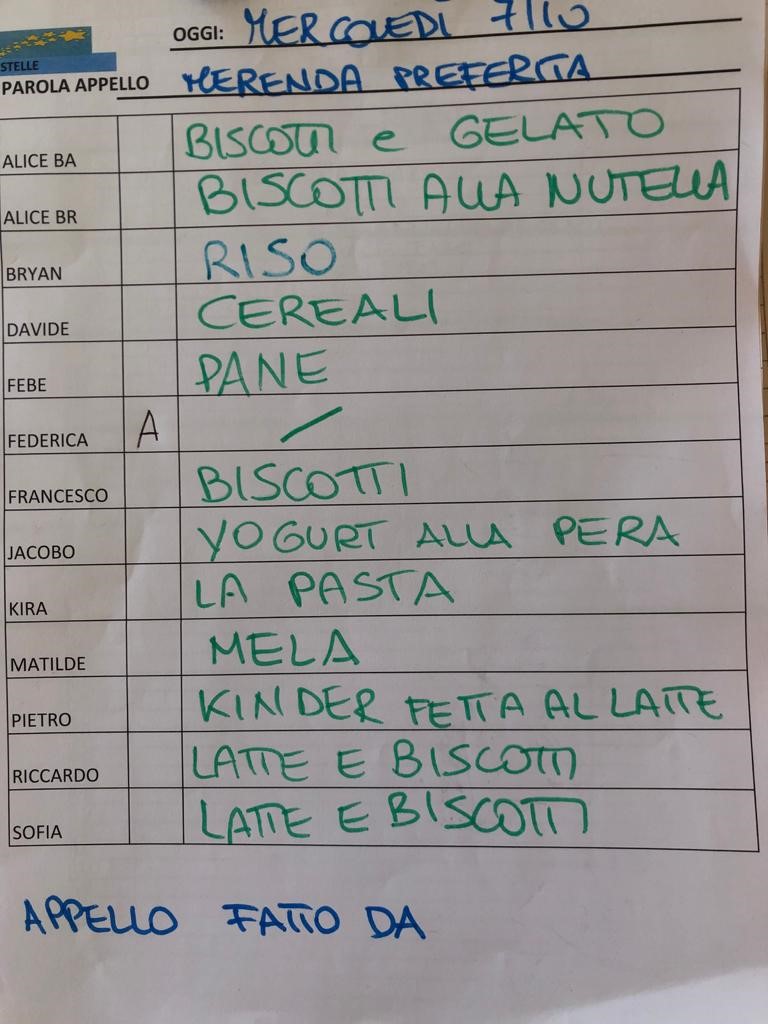 OGGI: MERCOLEDÌ 7/10
STELLE
PAROLA APPELLO MERENDA PREFERITA
ALICE BA BISCOTTI e GELATO
ALICE BR BISCOTTI ALLA NUTELLA
BRYAN RISO
DAVIDE CEREALI
FEBE PANE
FEDERICA A /
FRANCESCO BISCOTTI
JACOBO YOGURT ALLA PERA
KIRA LA PASTA
MATILDE MELA
PIETRO KINDER FETTA AL LATTE
RICCARDO LATTE E BISCOTTI
SOFIA LATTE E BISCOTTI
APPELLO FATTO DA